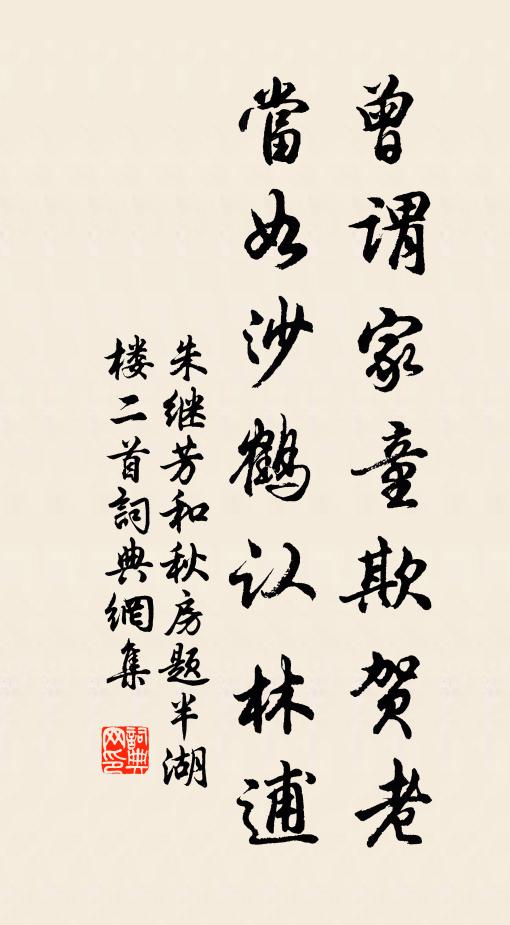 曾谓家童欺贺老
當如沙鶴认林逋
朱继芳和秋房题半湖
楼二首詞典網集
詞典
网